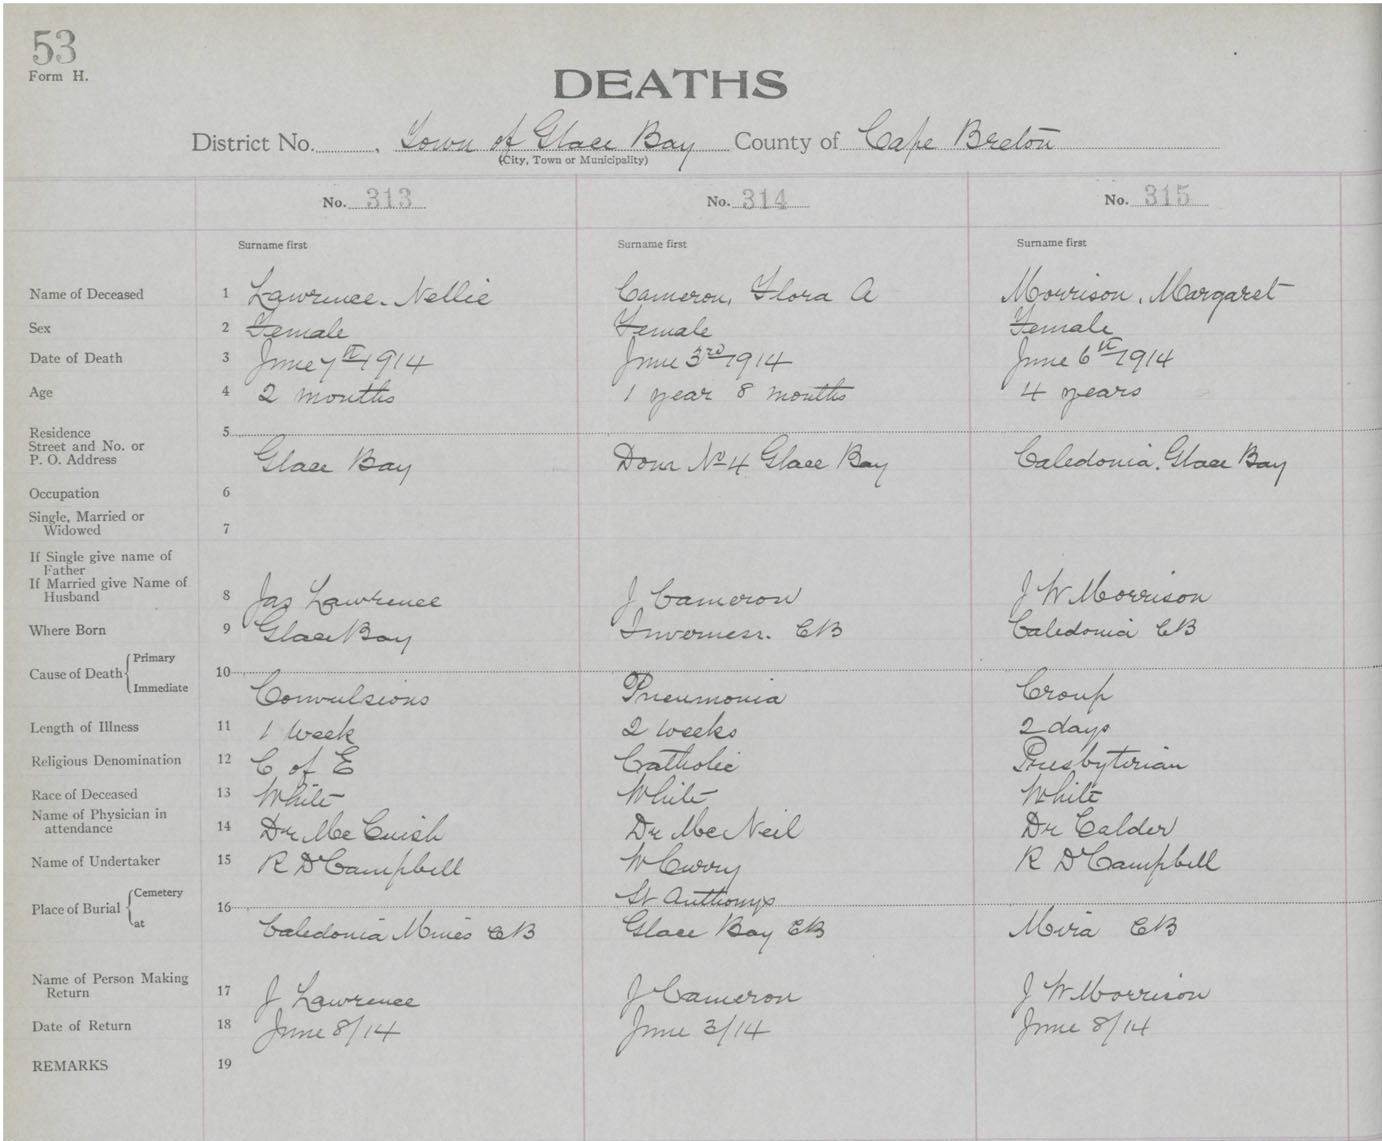 53
Form H.
DEATHS
District No. , Town of Glace Bay County of Cape Breton
(City, Town or Municipality)
No. 313 No. 314 No. 315
Surname first Surname first Surname first
Name of Deceased 1 Lawrence, Nellie Cameron, Flora A Morrison, Margaret
Sex 2 Female Female Female
Date of Death 3 June 7th 1914 June 3rd 1914 June 6th 1914
Age 4 2 months 1 year 8 months 4 years
Residence 5
Street and No. or
P. O. Address Glace Bay Dom No 4 Glace Bay Caledonia, Glace Bay
Occupation 6
Single, Married or
Widowed 7
If Single give name of
Father
If Married give Name of
Husband 8 Jas Lawrence J Cameron J W Morrison
Where Born 9 Glace Bay Inverness. CB Caledonia CB
Primary
Cause of Death 10
Immediate Convulsions Pneumonia Croup
Length of Illness 11 1 week 2 weeks 2 days
Religious Denomination 12 C of E Catholic Presbyterian
Race of Deceased 13 White White White
Name of Physician in
attendance 14 Dr McCuish Dr McNeil Dr Calder
Name of Undertaker 15 R D Campbell W Curry R D Campbell
Cemetery St Anthonys
Place of Burial 16
at Caledonia Mines CB Glace Bay CB Mira CB
Name of Person Making
Return 17 J Lawrence J Cameron J W Morrison
Date of Return 18 June 8/14 June 3/14 June 8/14
REMARKS 19